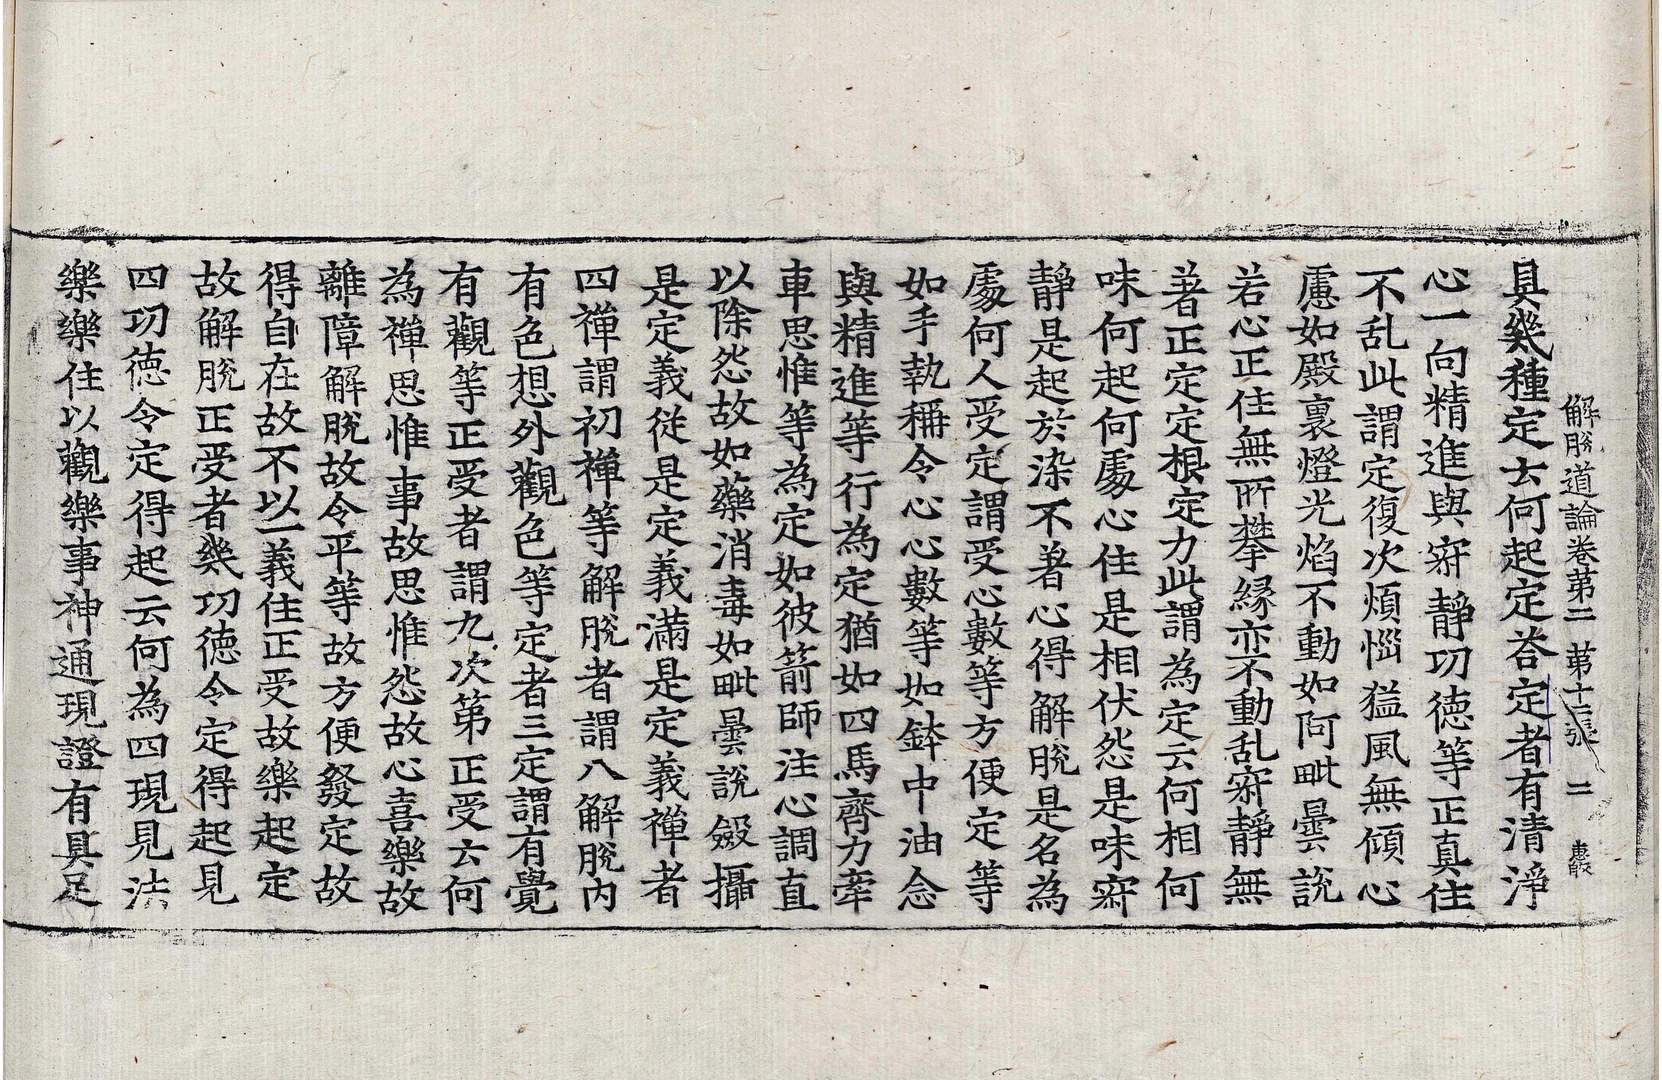 解脫道論卷第二 第十二張 二
具幾種定云何起定荅定者有清淨
心一向精進與寂靜功德等正真住
不乱此謂定復次煩惱猛風無傾心
慮如殿裏燈光焰不動如阿毗曇說
若心正住無所攀緣亦不動乱寂靜無
著正定定根定力此謂為定云何相何
味何起何處心住是相伏怨是味寂
靜是起於染不著心得解脫是名為
處何人受定謂受心數等方便定等
如手執稱令心心數等如鉢中油念
與精進等行為定猶如四馬齊力牽
車思惟等為定如彼箭師注心調直
以除怨故如藥消毒如毗曇說斂攝
是定義從是定義滿是定義禪者
四禪謂初禪等解脫者謂八解脫內
有色想外觀色等定者三定謂有覺
有觀等正受者謂九次第正受云何
為禪思惟事故思惟怨故心喜樂故
離障解脫故令平等故方便發定故
得自在故不以一義住正受故樂起定
故解脫正受者幾功德令定得起見
四功德令定得起云何為四現見法
樂樂住以觀樂事神通現證有具足